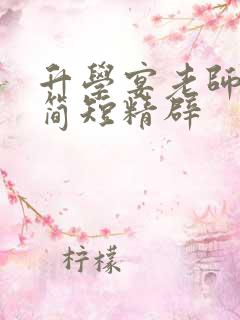 升學宴老師
简短精辟
柠檬